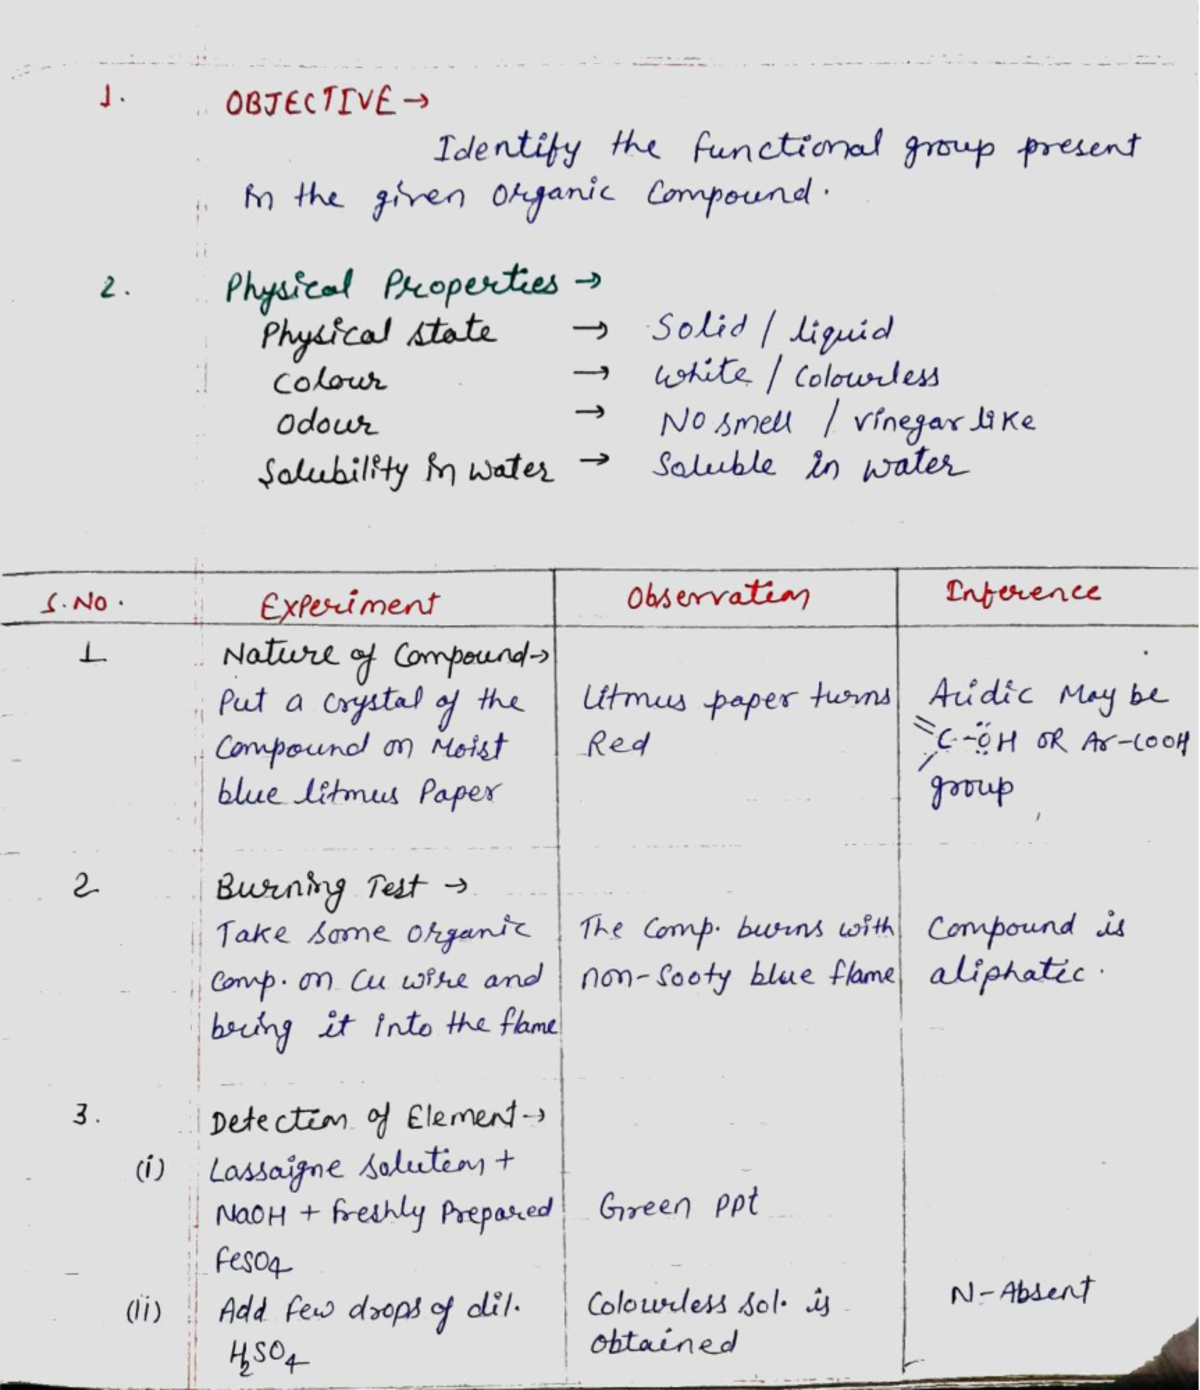 1. OBJECTIVE →
Identify the functional group present
in the given organic compound.
2. Physical Properties →
Physical state → Solid / liquid
Colour → White / Colourless
Odour → No smell / vinegar like
Solubility in water → Soluble in water
S.No. Experiment Observation Inference
1 Nature of Compound→
Put a crystal of the Litmus paper turns Acidic May be
Compound on Moist Red =C-ÖH OR Ar-COOH
blue litmus Paper group
2 Burning Test →
Take some organic The Comp. burns with Compound is
Comp. on Cu wire and non-Sooty blue flame aliphatic.
bring it into the flame
3. Detection of Element→
(i) Lassaigne solution +
NaOH + freshly Prepared Green ppt
FeSO4
(ii) Add few drops of dil. Colourless sol. is N-Absent
H2SO4 obtained